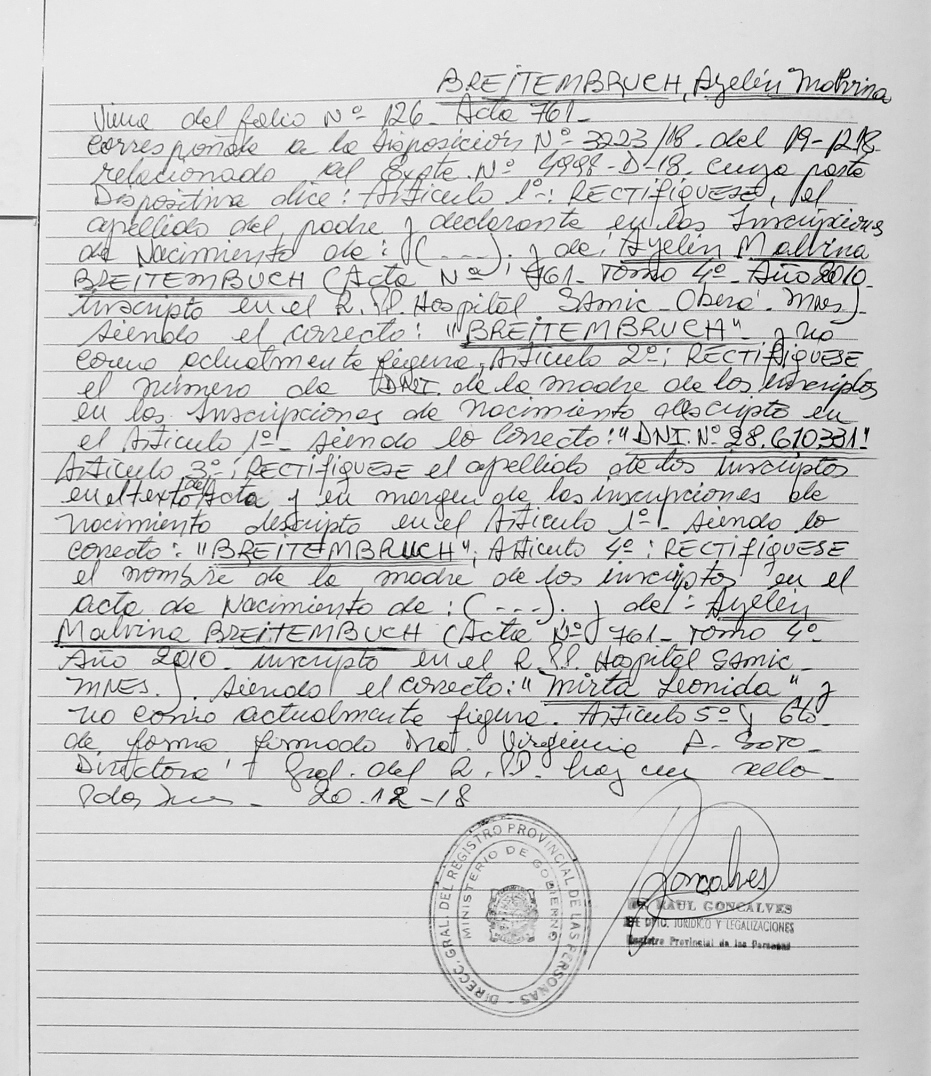 BREITEMBRUCH, Ayelén Malvina
Viene del folio Nº 126 - Acta 761 -
Corresponde a la Disposición Nº 3223/18 - del 19-12-18
relacionado al Expte. Nº 4998-D-18 - cuya parte
Dispositiva dice: Artículo 1º: RECTIFIQUESE, el
apellido del padre y declarante en las Inscripciones
de Nacimiento de: (- - -). y de: Ayelén Malvina
BREITEMBUCH (Acta Nº 761 - Tomo 4º - Año 2010 -
inscripto en el R.PP. Hospital SAMIC - Oberá - MNES)
siendo el correcto: "BREITEMBRUCH" - y no
como actualmente figura. Artículo 2º: RECTIFIQUESE
el número de DNI. de la madre de los inscriptos
en las Inscripciones de Nacimiento descripto en
el Artículo 1º - siendo lo correcto: "DNI. Nº 28.610.331"
Artículo 3º: RECTIFIQUESE el apellido de los inscriptos
en el texto del Acta y en margen de las inscripciones de
nacimiento descripto en el Artículo 1º - siendo lo
correcto: "BREITEMBRUCH"; Artículo 4º: RECTIFIQUESE
el nombre de la madre de los inscriptos en el
acta de Nacimiento de: (- - -). y de: Ayelén
Malvina BREITEMBUCH (Acta Nº 761 - Tomo 4º -
Año 2010 - inscripto en el R.PP. Hospital SAMIC -
MNES.). siendo el correcto: "Mirta Leonida" y
no como actualmente figura. Artículo 5º y
de forma firmado Dra. Virginia R. Soto -
Directora Gral. del R.PP. hay un sello -
20.12-18
DIRECC. GRAL. DEL REGISTRO PROVINCIAL DE LAS PERSONAS
MINISTERIO DE GOBIERNO
Goncalves
RAUL GONCALVES
JEFE DPTO. JURIDICO Y LEGALIZACIONES
Registro Provincial de las Personas